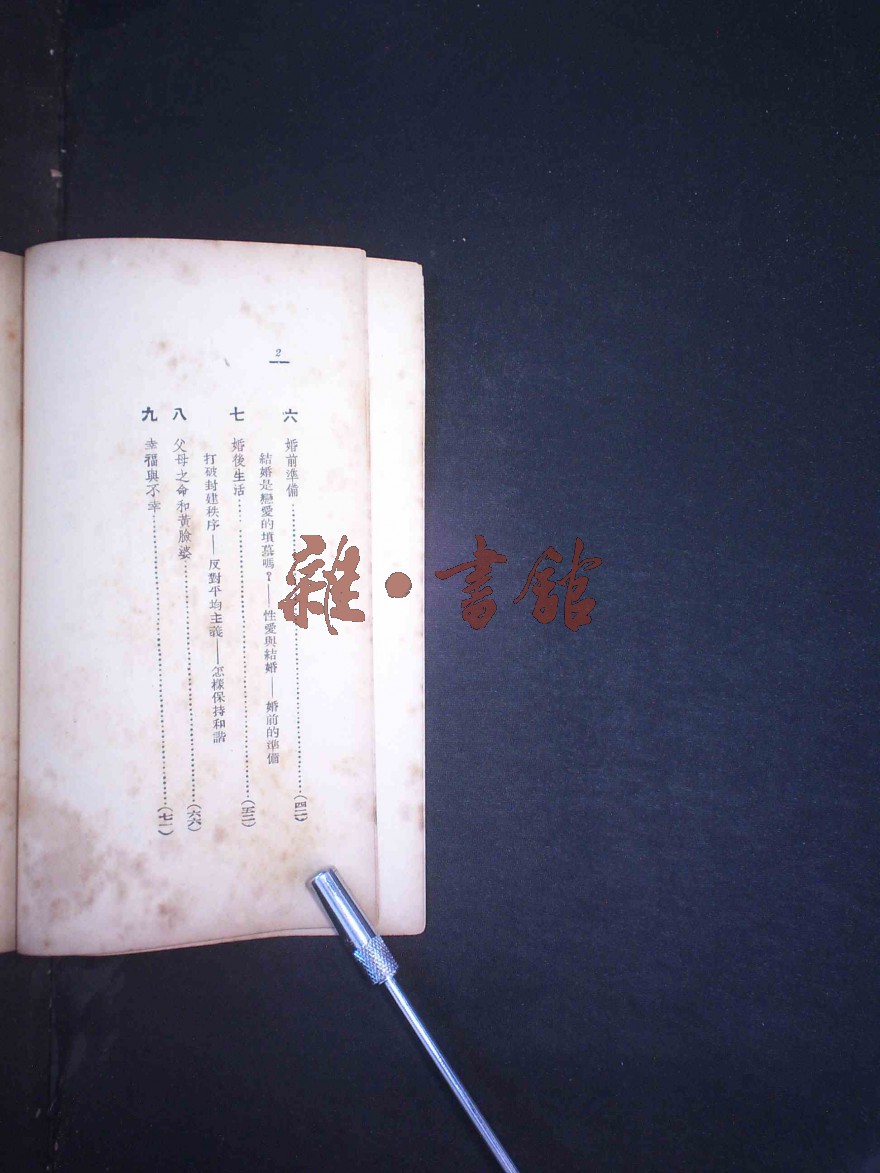 2
六 婚前準備……(四二)
結婚是戀愛的墳墓嗎？——性愛與結婚——婚前的準備
七 婚後生活……(五二)
打破封建秩序——反對平均主義——怎樣保持和諧
八 父母之命和黃臉婆……(六六)
九 幸福與不幸……(七一)
雜·書館